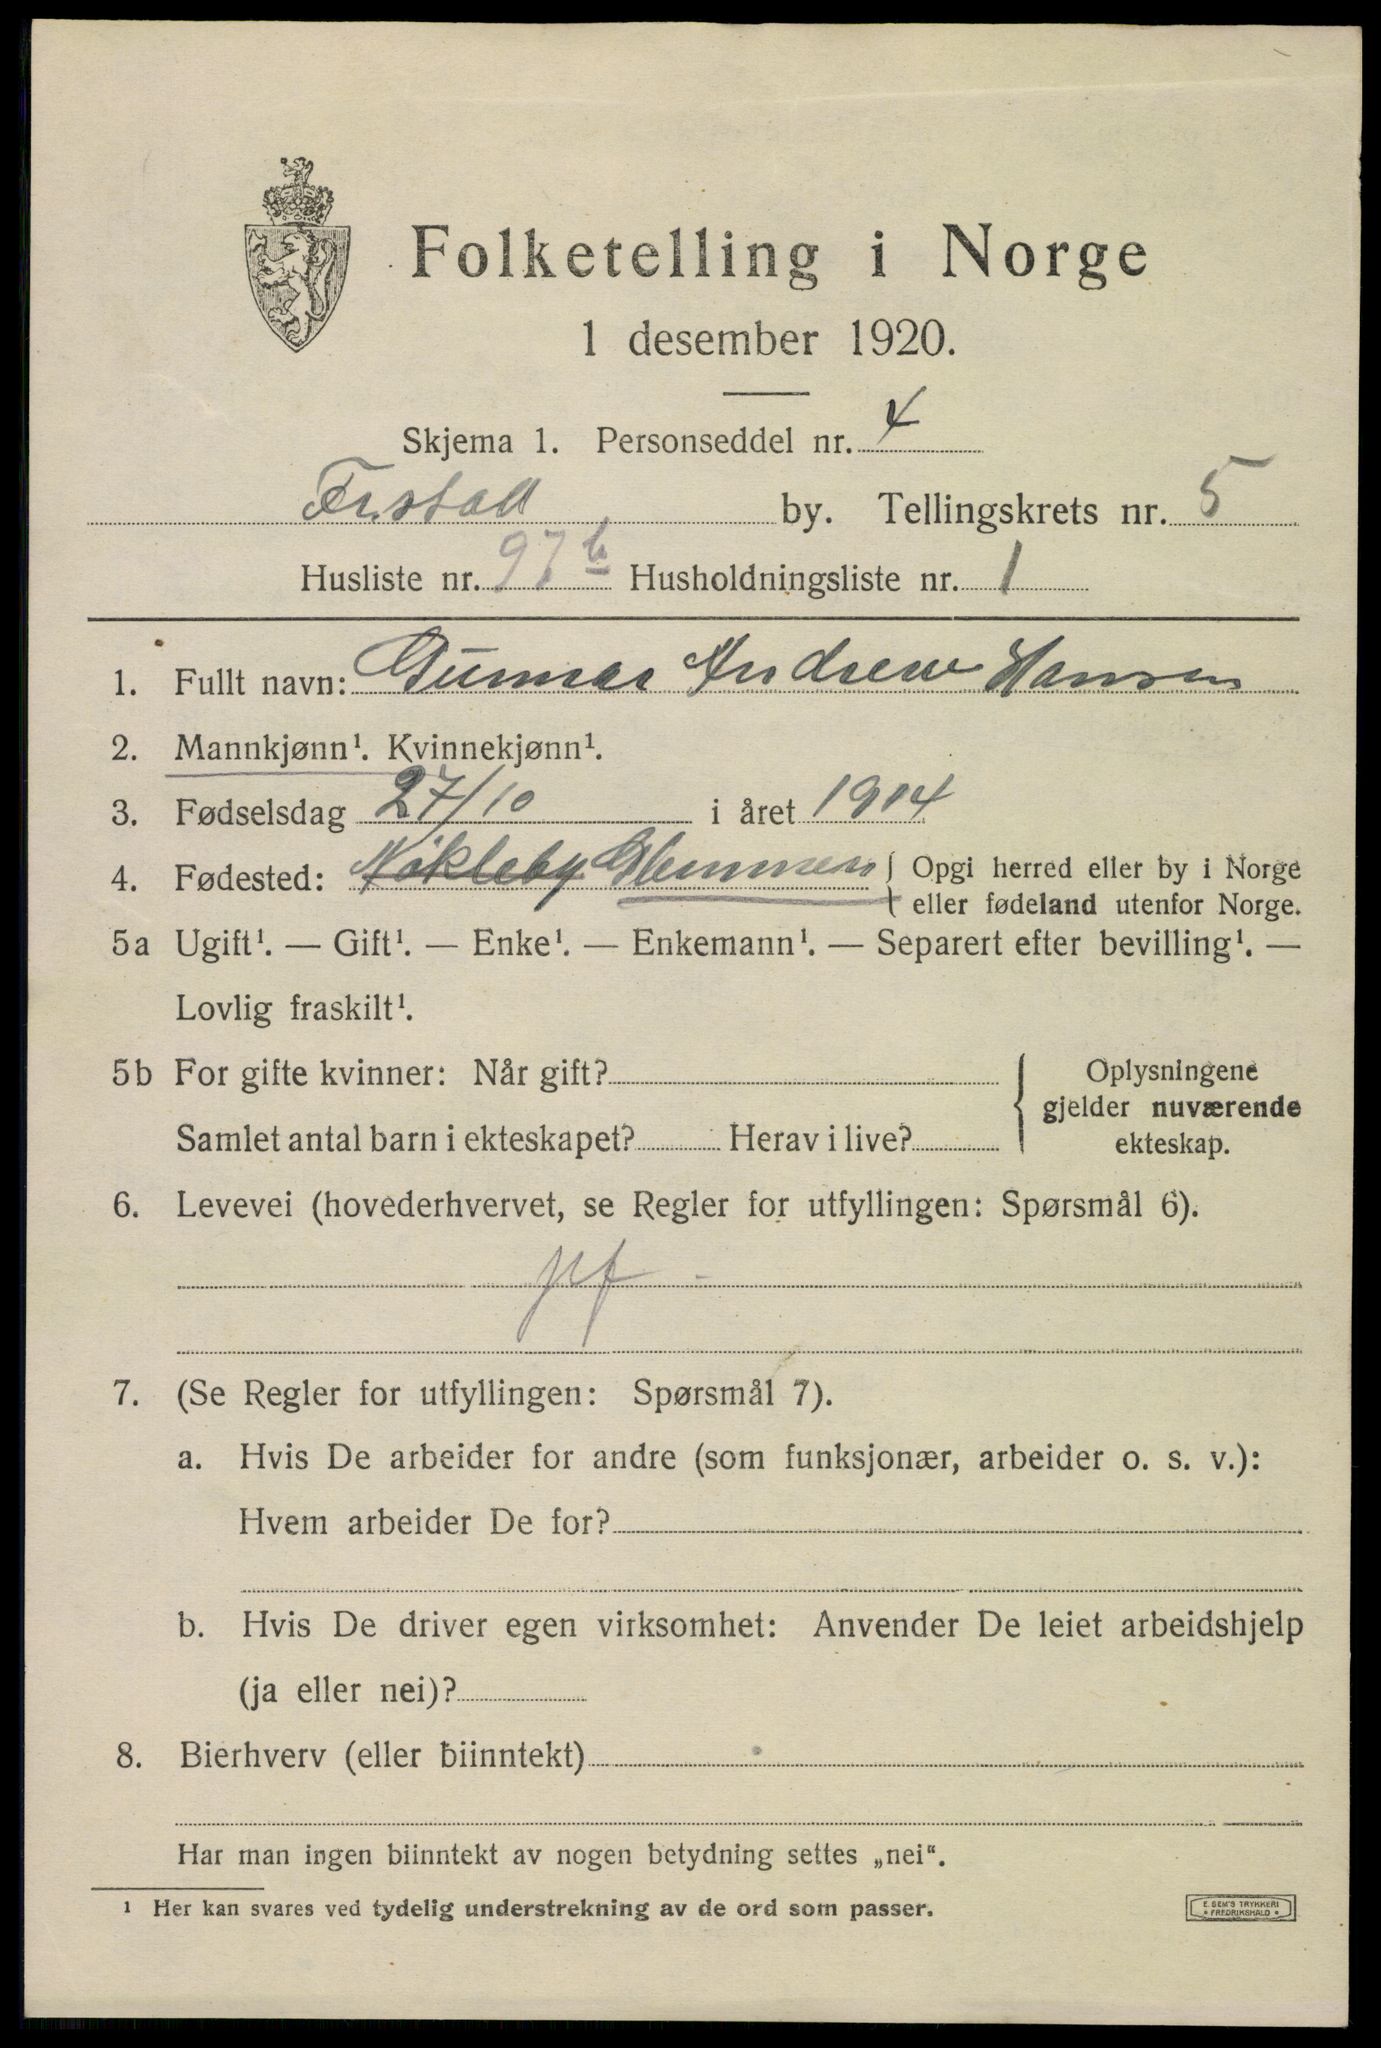 Folketelling i Norge
1 desember 1920.
Skjema 1. Personseddel nr. 4
Fr.stad by. Tellingskrets nr. 5
Husliste nr. 97b Husholdningsliste nr. 1
1. Fullt navn: Gunnar Andreas Hansen
2. Mannkjønn¹. Kvinnekjønn¹.
3. Fødselsdag 27/10 i året 1914
4. Fødested: Nøkleby Glemmen { Opgi herred eller by i Norge
eller fødeland utenfor Norge.
5a Ugift¹. — Gift¹. — Enke¹. — Enkemann¹. — Separert efter bevilling¹. —
Lovlig fraskilt¹.
5b For gifte kvinner: Når gift? { Oplysningene
gjelder nuværende
Samlet antal barn i ekteskapet? Herav i live? ekteskap.
6. Levevei (hovederhvervet, se Regler for utfyllingen: Spørsmål 6).
7. (Se Regler for utfyllingen: Spørsmål 7).
a. Hvis De arbeider for andre (som funksjonær, arbeider o. s. v.):
Hvem arbeider De for?
b. Hvis De driver egen virksomhet: Anvender De leiet arbeidshjelp
(ja eller nei)?
8. Bierhverv (eller biinntekt)
Har man ingen biinntekt av nogen betydning settes „nei“.
¹ Her kan svares ved tydelig understrekning av de ord som passer.
E. SEM'S TRYKKERI
* FREDRIKSHALD *